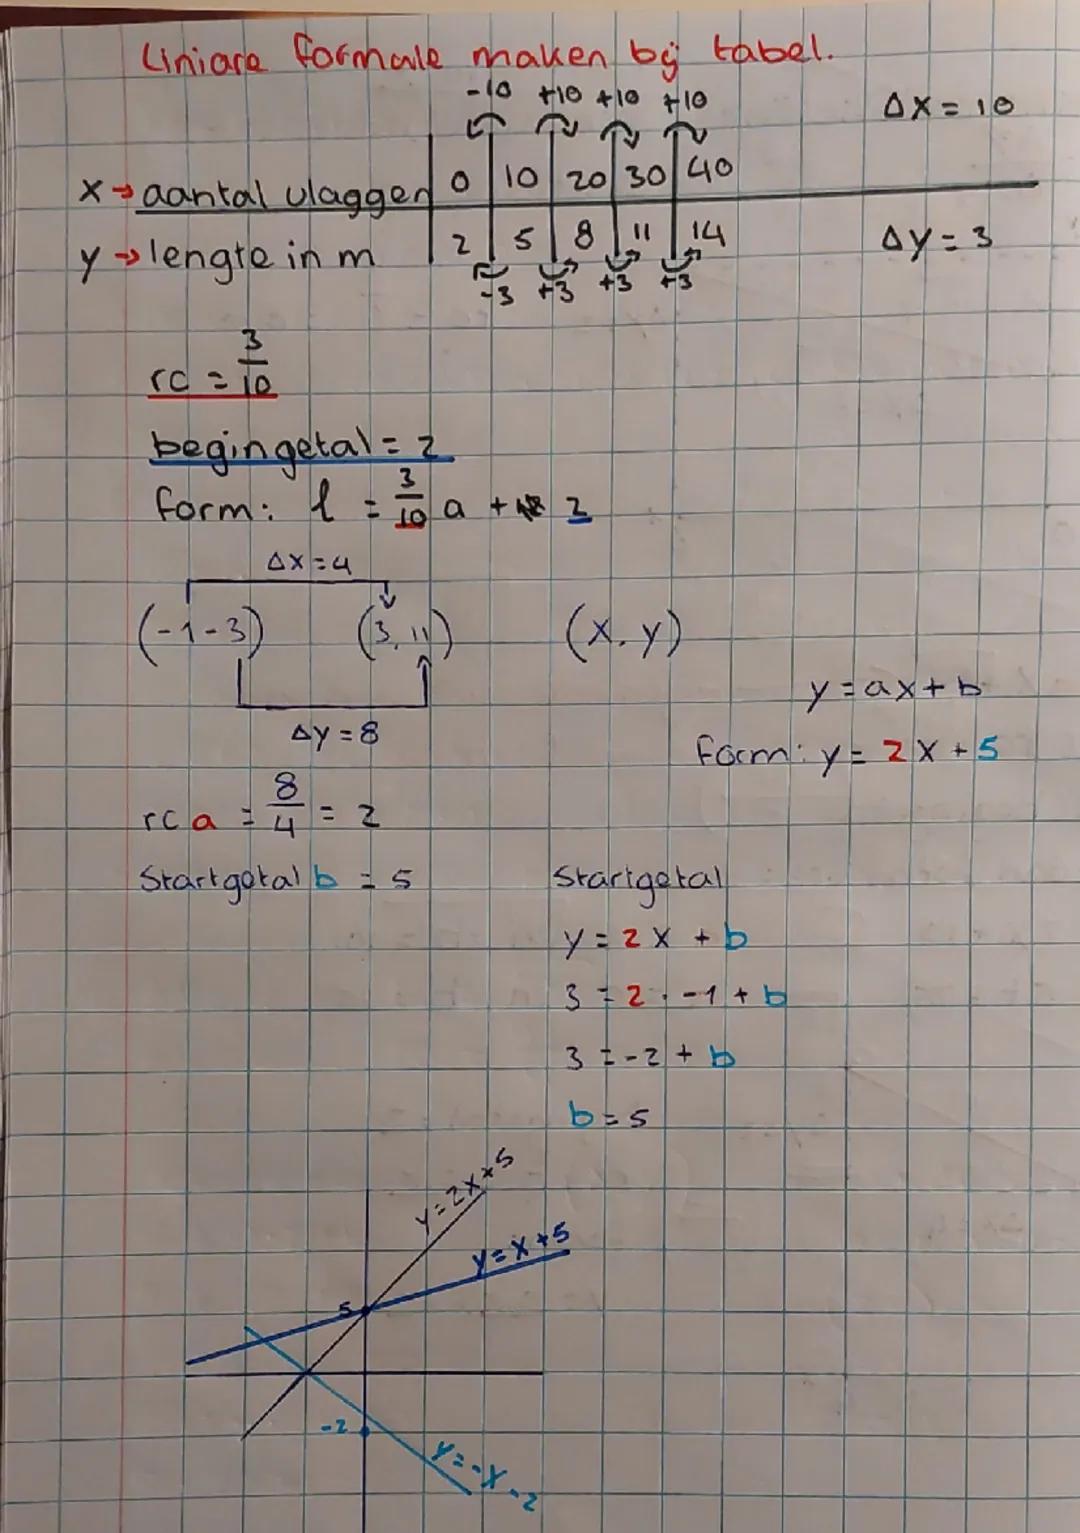 Liniare formule maken bij tabel.
-10 +10 +10 +10 Δx = 10
x → aantal vlaggen 0 10 20 30 40
y → lengte in m 2 5 8 11 14 Δy = 3
-3 +3 +3 +3
rc = 3/10
begingetal = 2
form: l = 3/10 a + 2
Δx = 4
(-1-3) (3, 11) (x, y)
Δy = 8
y = ax + b
form: y = 2x + 5
rc a = 8/4 = 2
Startgetal b = 5
Startgetal
y = 2x + b
3 = 2 · -1 + b
3 = -2 + b
b = 5
y = 2x + 5
y = x + 5
5
-2
y = -x - 2